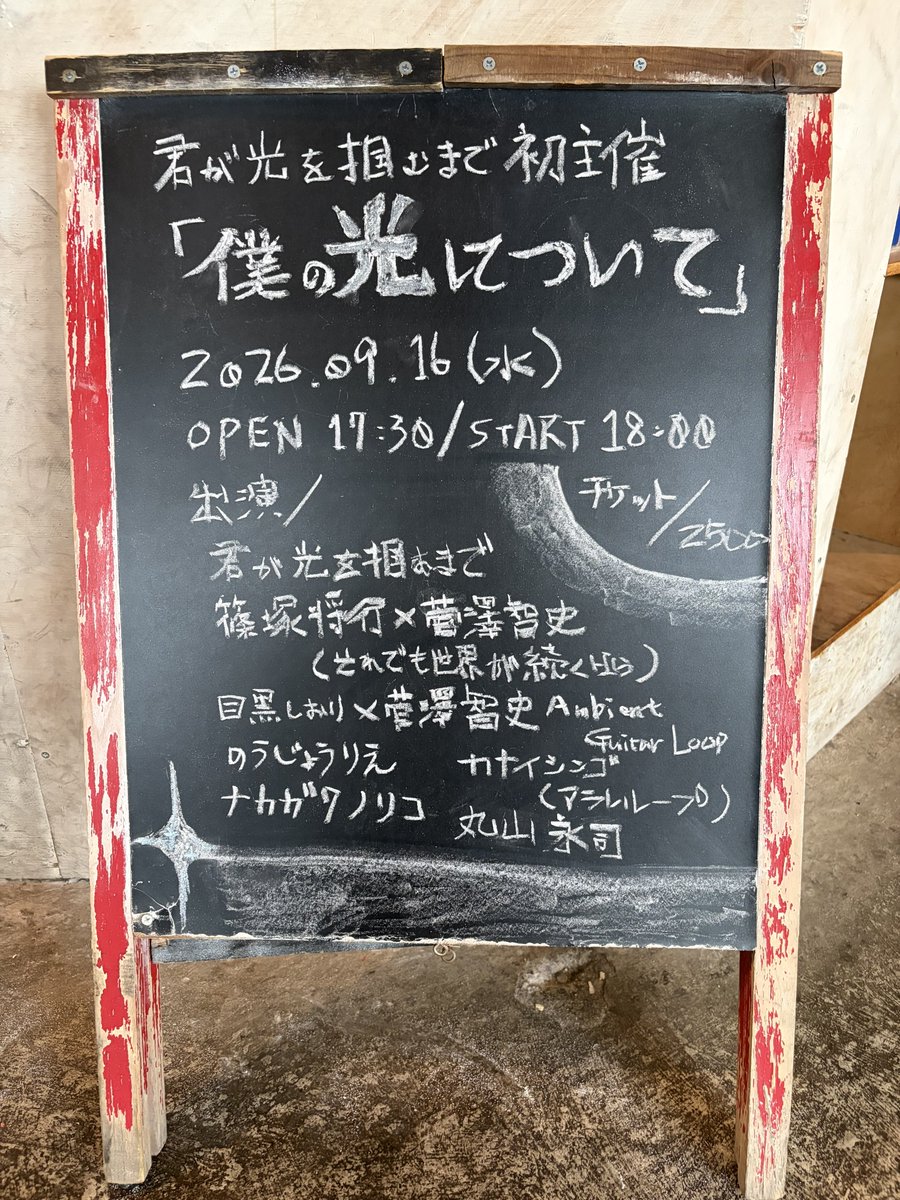 君が光を掴むまで 初主催
「僕の光について」
2026.09.16(水)
OPEN 17:30/START 18:00
出演/
チケット/2500
君が光を掴むまで
篠塚将行×菅澤智史
(それでも世界が続くなら)
目黒しおり×菅澤智史 Ambient Guitar Loop
のうじょうりえ
カナイシンゴ
(アラレループ)
ナカガワノリコ
丸山永司